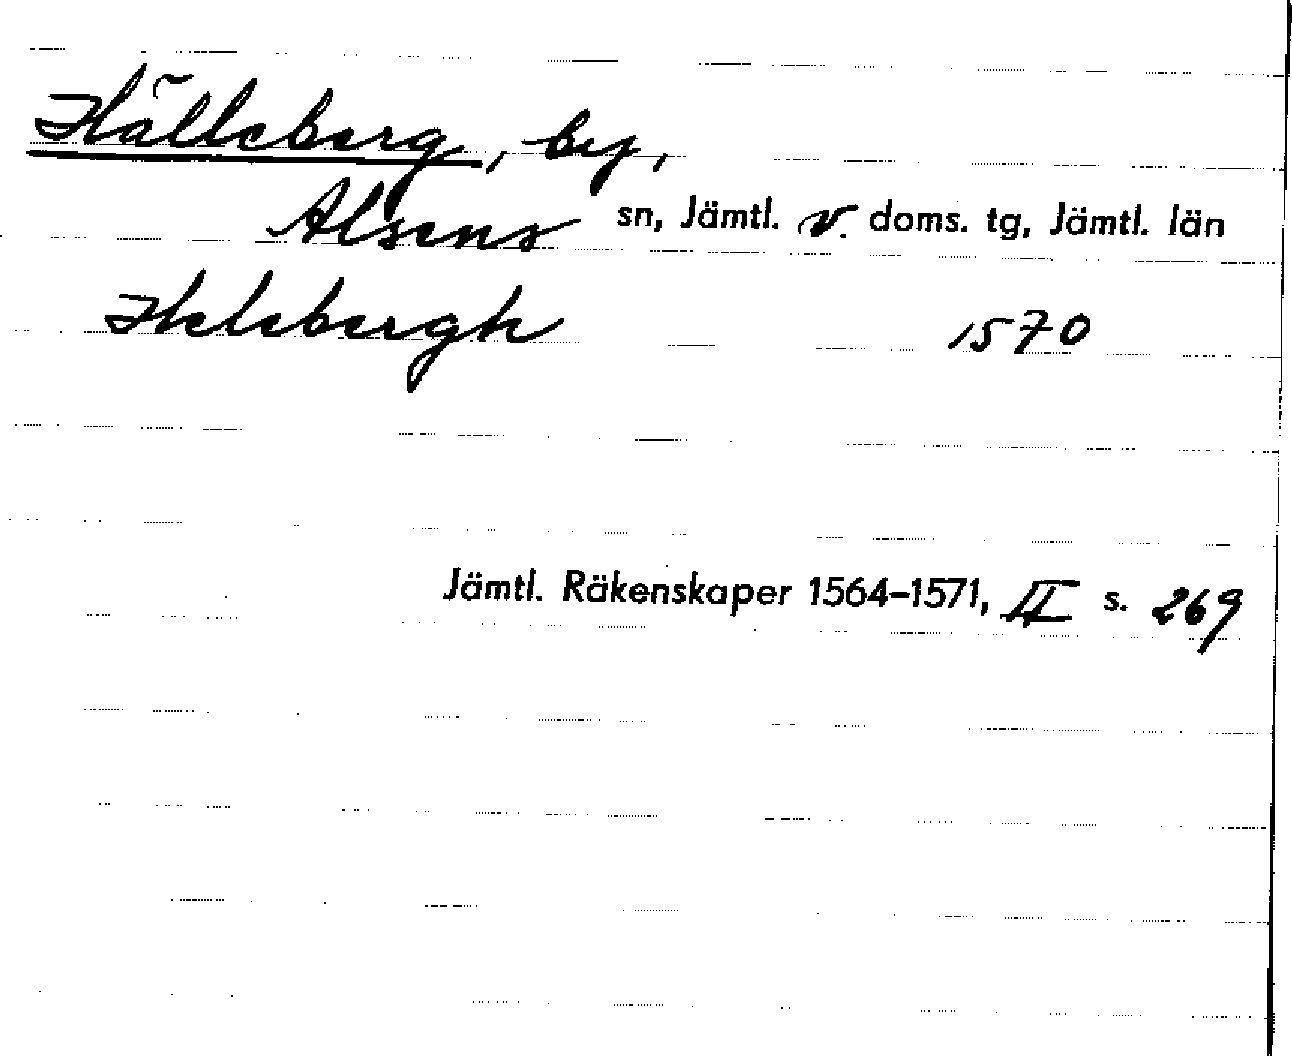 Hälleberg, by,
Alsens sn, Jämtl. v. doms. tg, Jämtl. län
Helebergh 1570
Jämtl. Räkenskaper 1564–1571, II s. 269